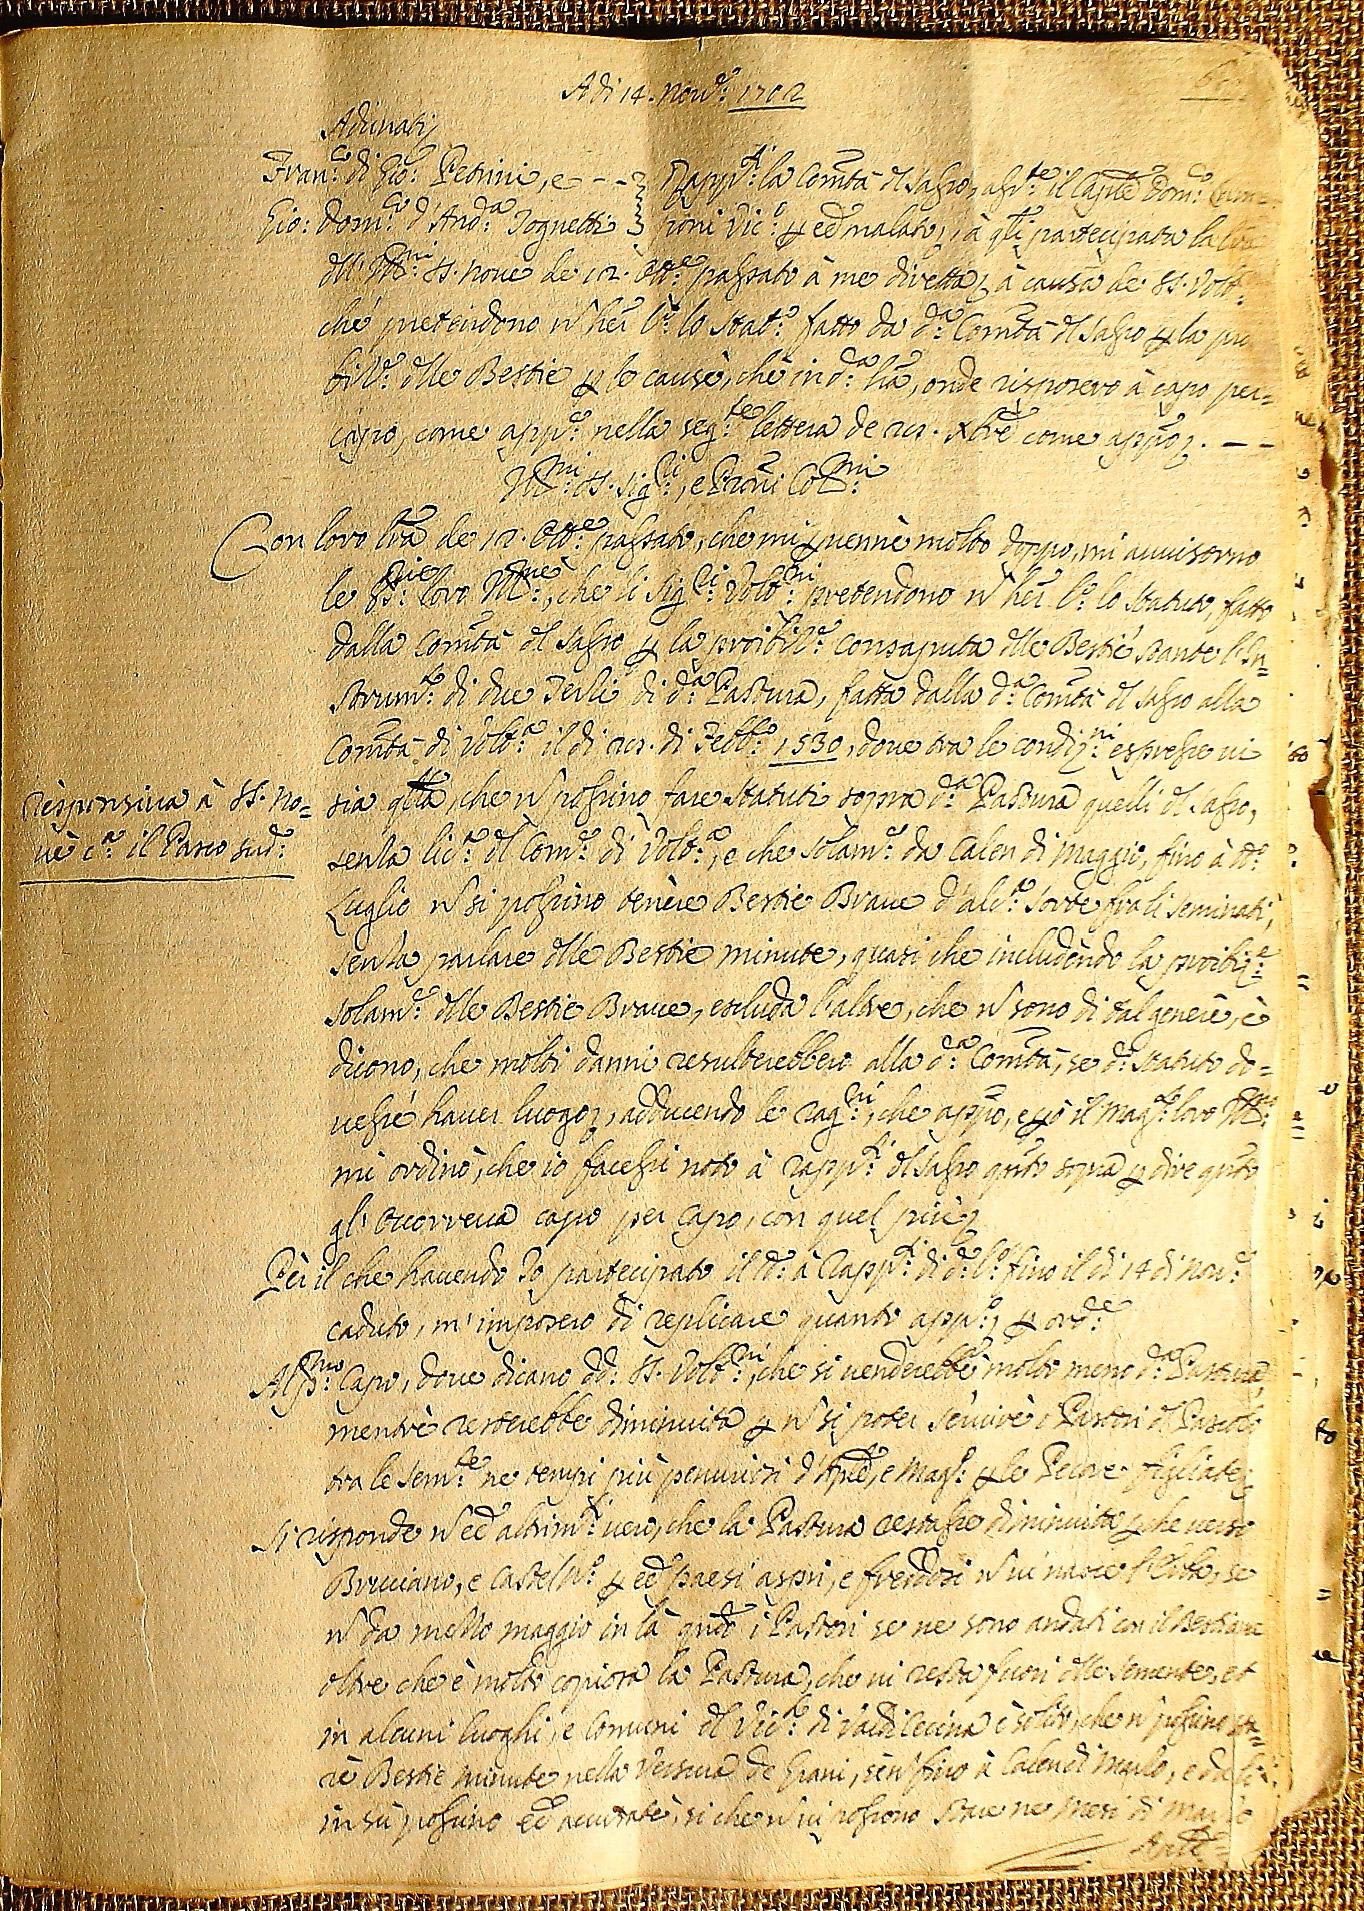 Adi 14. Nov.e: 1702
Adunati
Fran:co di Gio: Petrini, e - - Rapp.ti: la Com.tà del Sasso, ass.te il Cap.ne Dom:co
Gio: Dom:co d'And:a Tognetti roni Vic:o p ee malato, à q.li participata la
dell' Ill:mi SS. nove de 12. Ott:e passato à me diretta à causa de SS. Volt:
che pretendono n haver l:o lo Stat:o fatto da d:a Com.tà del Sasso p la pro
bit:e delle Bestie p le cause, che in d:a l.ra, onde risposero à capo per=
capo, come app:o nella seg:te lettera de 21. Xbre come app:o. — —
Ill:mi SS. Sig:ri, e Pr̃oni Col:mi
Con loro l.ra de 12. Ott:e passato, che mi p venne molto doppo, mi avvisorno
le SS:rie loro Ill:me, che li Sig:ri Volt:ni pretendono n haver l:o lo Statuto, fatto
dalla Com.tà del Sasso p la proibit:e consaputa delle Bestie stante l'In=
strum:to di due Terzi di d:a Pastura, fatta dalla d:a Com.tà del Sasso alla
Com.tà di Volt:a il di 21. di Febb:o 1530, dove tra le condiz:ni espresse vi
sia q.lla, che n possino fare Statuti sopra d:a Pastura quelli del Sasso,
senza lic:a del Com:e di Volt:a, e che solam:e da Calen di Maggio, fino à tt:o
Luglio n si possino tenere Bestie Brave d'alc:a sorte fra li seminati,
senza parlare delle Bestie minute, quasi che includendo la proibiz:e
solam:e delle Bestie Brave, escluda l'altre, che n sono di tal genere, è
dicono, che molti danni resulterebbero alla d:a Com.tà, se d:o Statuto do=
vesse haver luogo, adducendo le rag:ni, che app:o, e p ciò il Mag:to loro Ill:mo
mi ordinò, che io facessi noto à rapp:ti del Sasso q.nto sopra p dire q.nto
gl'occorreva capo per capo, con quel più
Per il che havendo Io participato il tt:o à Rapp:ti di d:o l:o fino il di 14 di Nov:e
caduto, m'imposero di replicare quanto app:o, p ord:e
Al p:mo Capo, dove dicano dd: SS. Volt:ni, che si venderebbe molto meno d:a Pastura,
mentre resterebbe diminuita p n si poter servire i Pastori del Pascolo
tra le sem:te ne tempi più penuriosi d'Aprile, e Mag:o p le Pecore figliate
Si risponde n ee altrim:ti vero, che la Pastura restasse diminuita p che verso
Bruciano, e Casteln:o p ee paesi aspri, e freddosi n vi nasce l'erba, se
n da mezzo maggio in là q.ndo i Pastori se ne sono andati con il Bestiame
oltre che è molto copiosa la Pastura, che vi resta fuori delle semente, et
in alcuni luoghi, e Comuni del Vic:to di Valdicecina è solito, che n possino
re Bestie minute nella Versura de Grani, se n fino à Calendi Marzo, e da lì
in su possino ee accusate, si che n vi possono stare ne Mesi di Marzo
Aprile
responsiva à SS. No=
ve c:a il Pasco sud:o